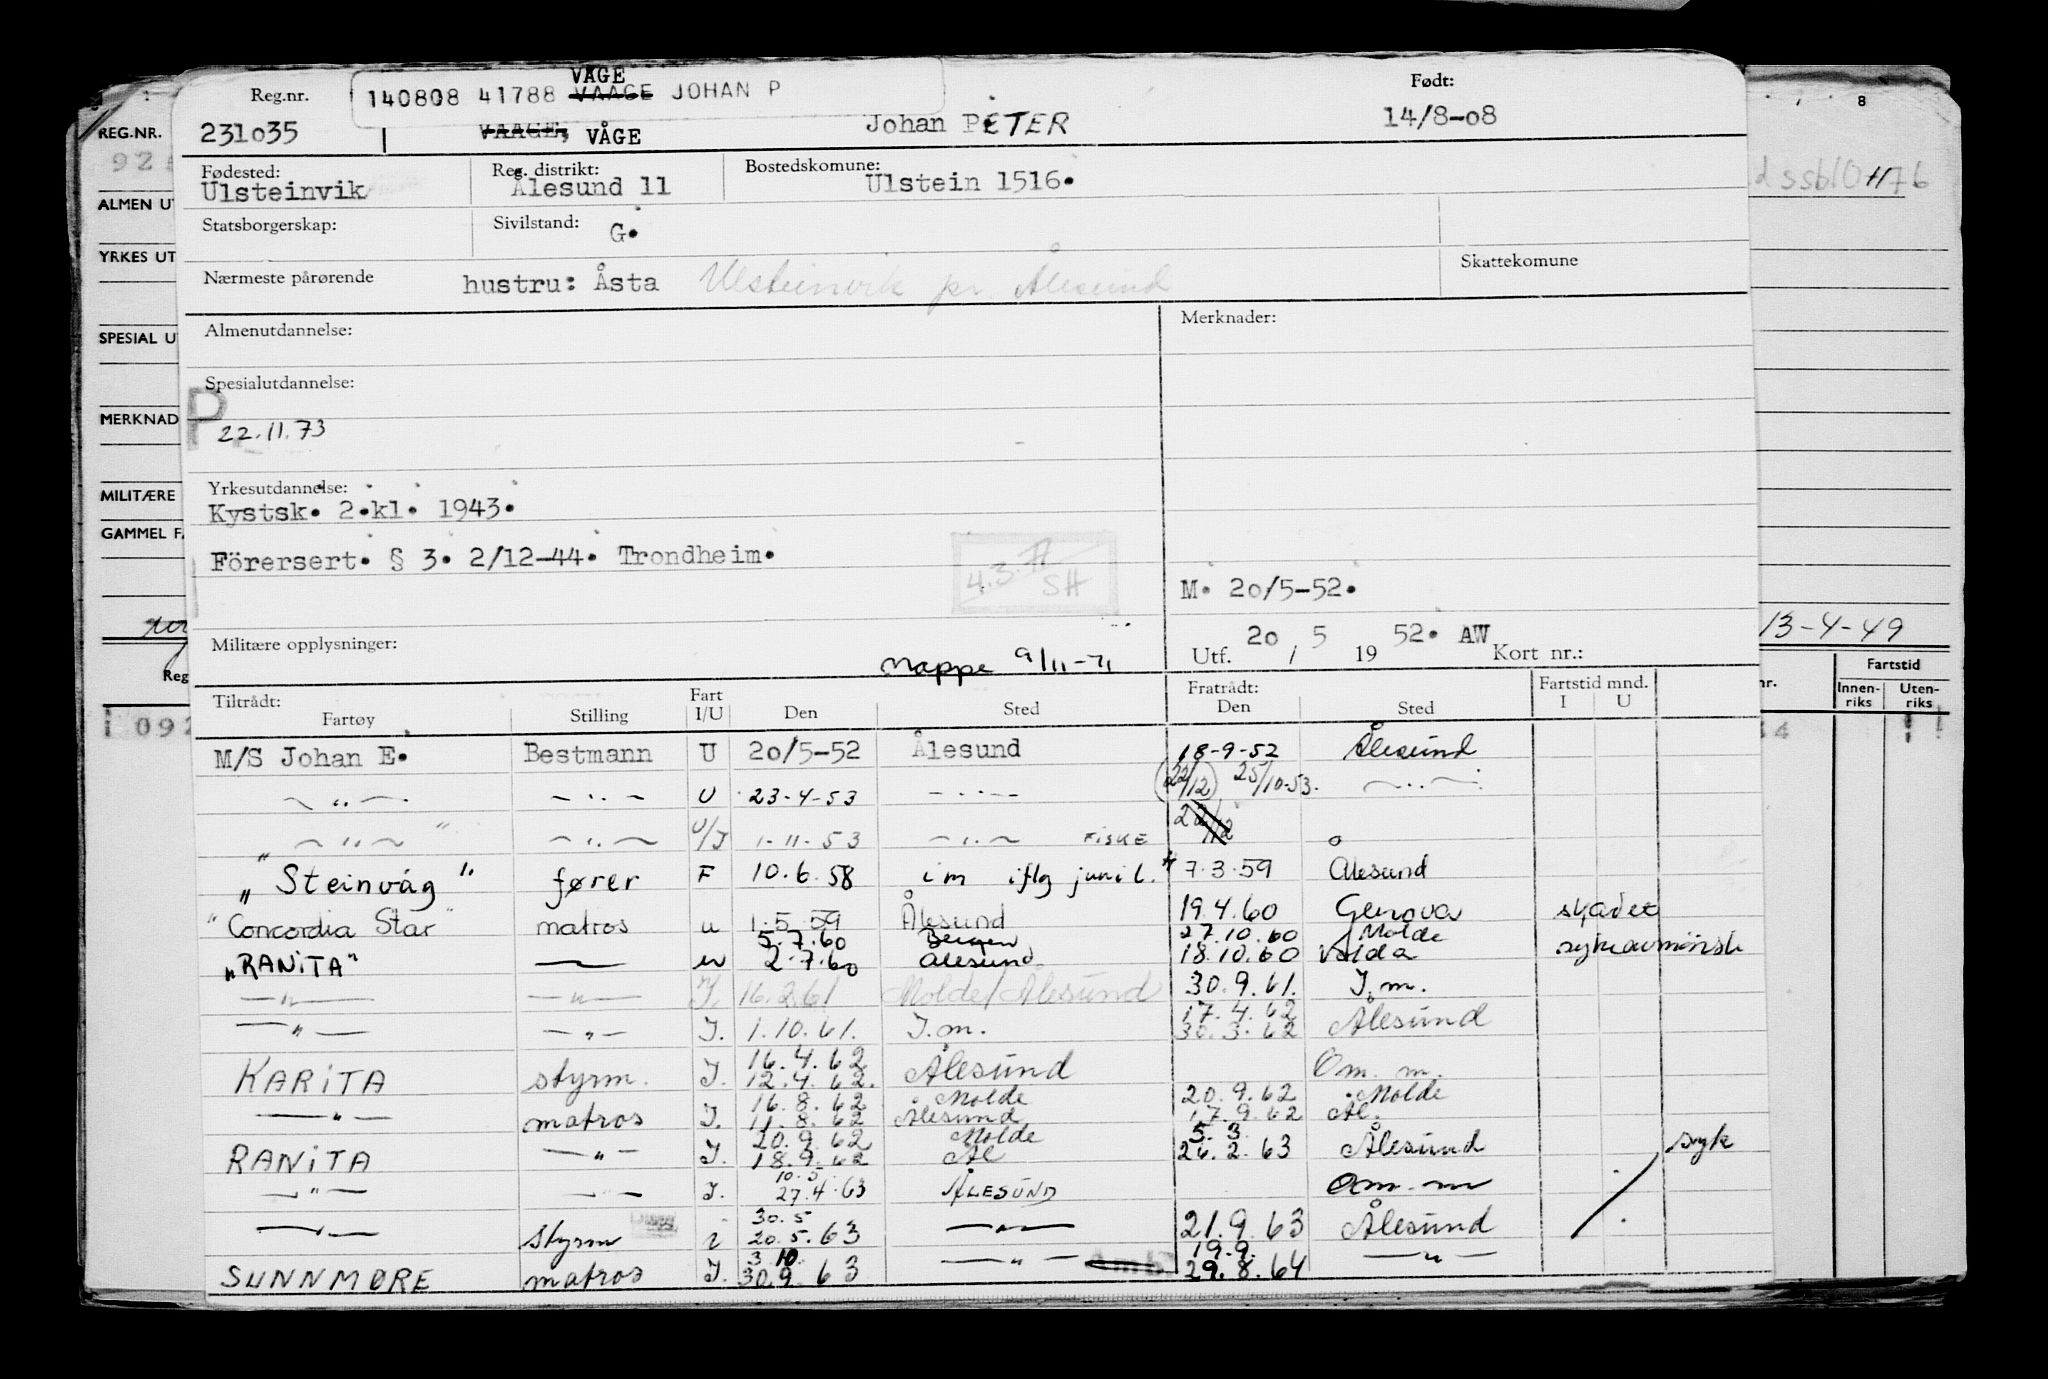 VÅGE
Reg.nr. 140808 41788 VAAGE JOHAN P Født:
231035 VAAGE, VÅGE Johan PETER 14/8-08
Fødested: Reg. distrikt: Bostedskomune:
Ulsteinvik Ålesund 11 Ulstein 1516.
Statsborgerskap: Sivilstand: G.
Nærmeste pårørende hustru: Åsta Ulsteinvik pr Ålesund Skattekomune
Almenutdannelse: Merknader:
Spesialutdannelse:
P
22.11.73
Yrkesutdannelse:
Kystsk. 2.kl. 1943.
Förersert. § 3. 2/12-44. Trondheim.
4.3. SH
M. 20/5-52.
Militære opplysninger: Mappe 9/11-71 Utf. 20 / 5 19 52. AW Kort nr.:
Tiltrådt: Fart Fratrådt: Fartstid mnd.
Fartøy Stilling I/U Den Sted Den Sted I U
M/S Johan E. Bestmann U 20/5-52 Ålesund 18-9-52 Ålesund
— " — — " — U 23-4-53 — " — (22/12) 25/10-53. — " —
— " — — " — U/I 1-11-53 — " — FISKE 22/12 o
"Steinvåg" fører F 10.6.58 i m iflg juni l. 7.3.59 Ålesund
"Concordia Star" matros u 1.5.59 Ålesund 19.4.60 Genova skadet
5.7.60 Bergen 27.10.60 Molde
"RANITA" — u 2.7.60 Ålesund 18.10.60 Volda sykeavmønstr
— " — — " — I. 16.2.61 Molde/Ålesund 30.9.61. I.m.
17.4.62
— " — — " — I. 1.10.61. I.m. 30.3.62 Ålesund
16.4.62
KARITA styrm. I. 12.4.62. Ålesund Om. m.
16.8.62 Molde 20.9.62 Molde
— " — matros I. 11.8.62 Ålesund 17.9.62 Ål.
20.9.62 Molde 5.3.
RANITA — " — I. 18.9.62 Ål 26.2.63 Ålesund syk
10.5
— " — — " — I. 27.4.63 ÅLESUND Om. m
30.5
— " — styrm i 20.5.63 — " — 21.9.63 Ålesund
3.10 19.9.
SUNNMØRE matros I. 30.9.63 — " — 29.8.64 — " —
REG.NR.
ALMEN UT
YRKES UT
SPESIAL U
MERKNAD
MILITÆRE
GAMMEL F
Reg
092
8
13-4-49
nr. Fartstid
Innen-riks Uten-riks